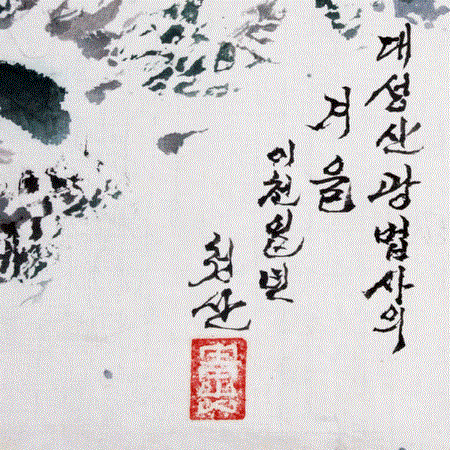 대성산 광법사의
겨울
이천일년
청산